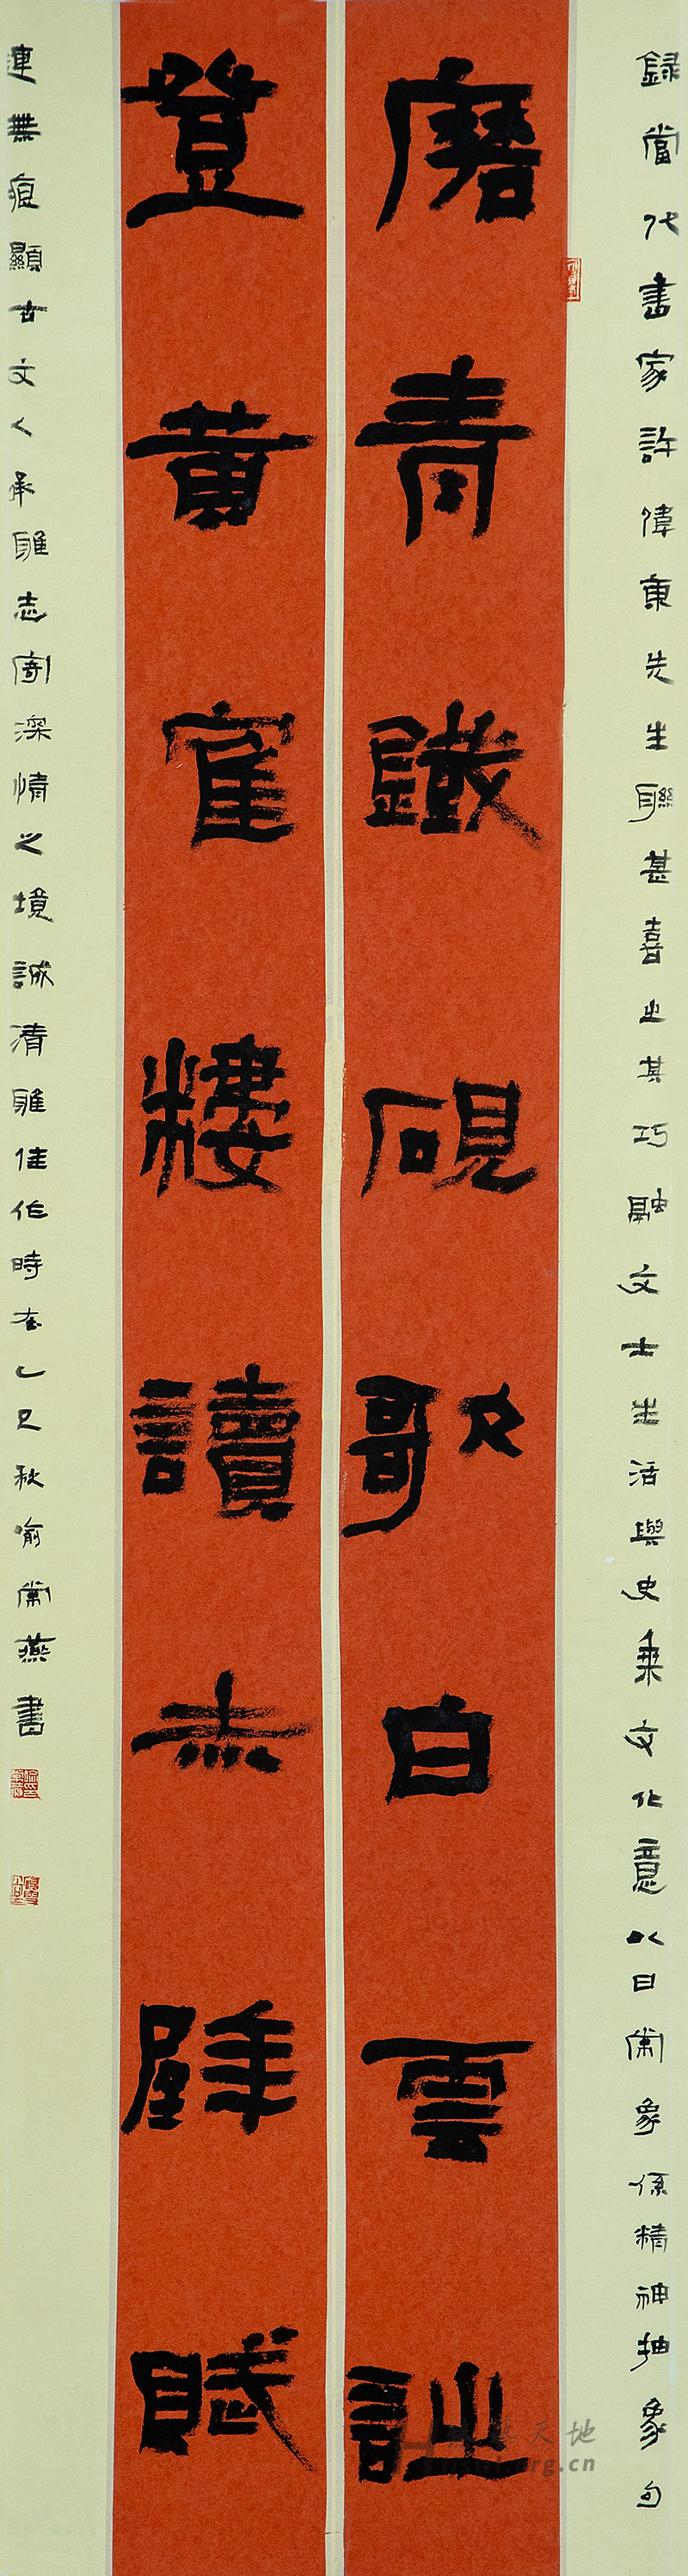 録當代書家許偉東先生聯甚喜之其巧融文士生活與史乘文化意以日常象係精神抽象勾
磨青鐵硯歌白雲詩
登黄寉樓讀赤壁賦
連無痕顯古文人承雅志寄深情之境誠清雅佳作時在乙巳秋喻常燕書
藝天地